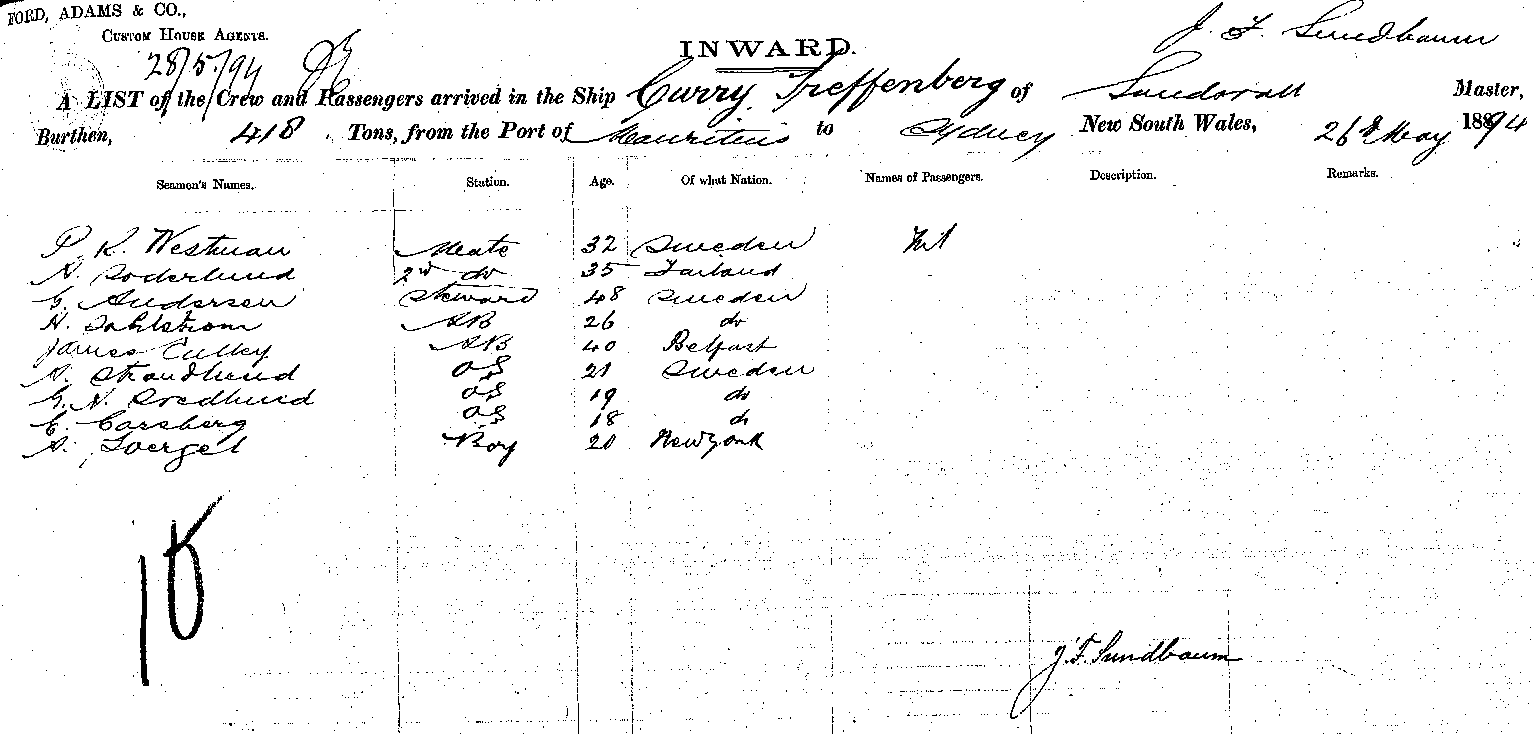 FORD, ADAMS & CO.,
CUSTOM HOUSE AGENTS.
28/5/94
INWARD.
J. F. Sundbaum
A LIST of the Crew and Passengers arrived in the Ship Curry Treffenberg of Sundsvall Master,
Burthen, 418 Tons, from the Port of Mauritius to Sydney New South Wales, 26th May 1894
Seamen's Names. Station. Age. Of what Nation. Names of Passengers. Description. Remarks.
P. R. Westman Mate 32 Sweden Nil
A. Soderlund 2nd do 35 Finland
G. Andersen Steward 48 Sweden
H. Dahlstrom AB 26 do
James Culley AB 40 Belfast
A. Strandlund OS 21 Sweden
G. N. OS 19 do
C. Carsberg OS 18 do
A. Boy 20 New York
10
J. F. Sundbaum